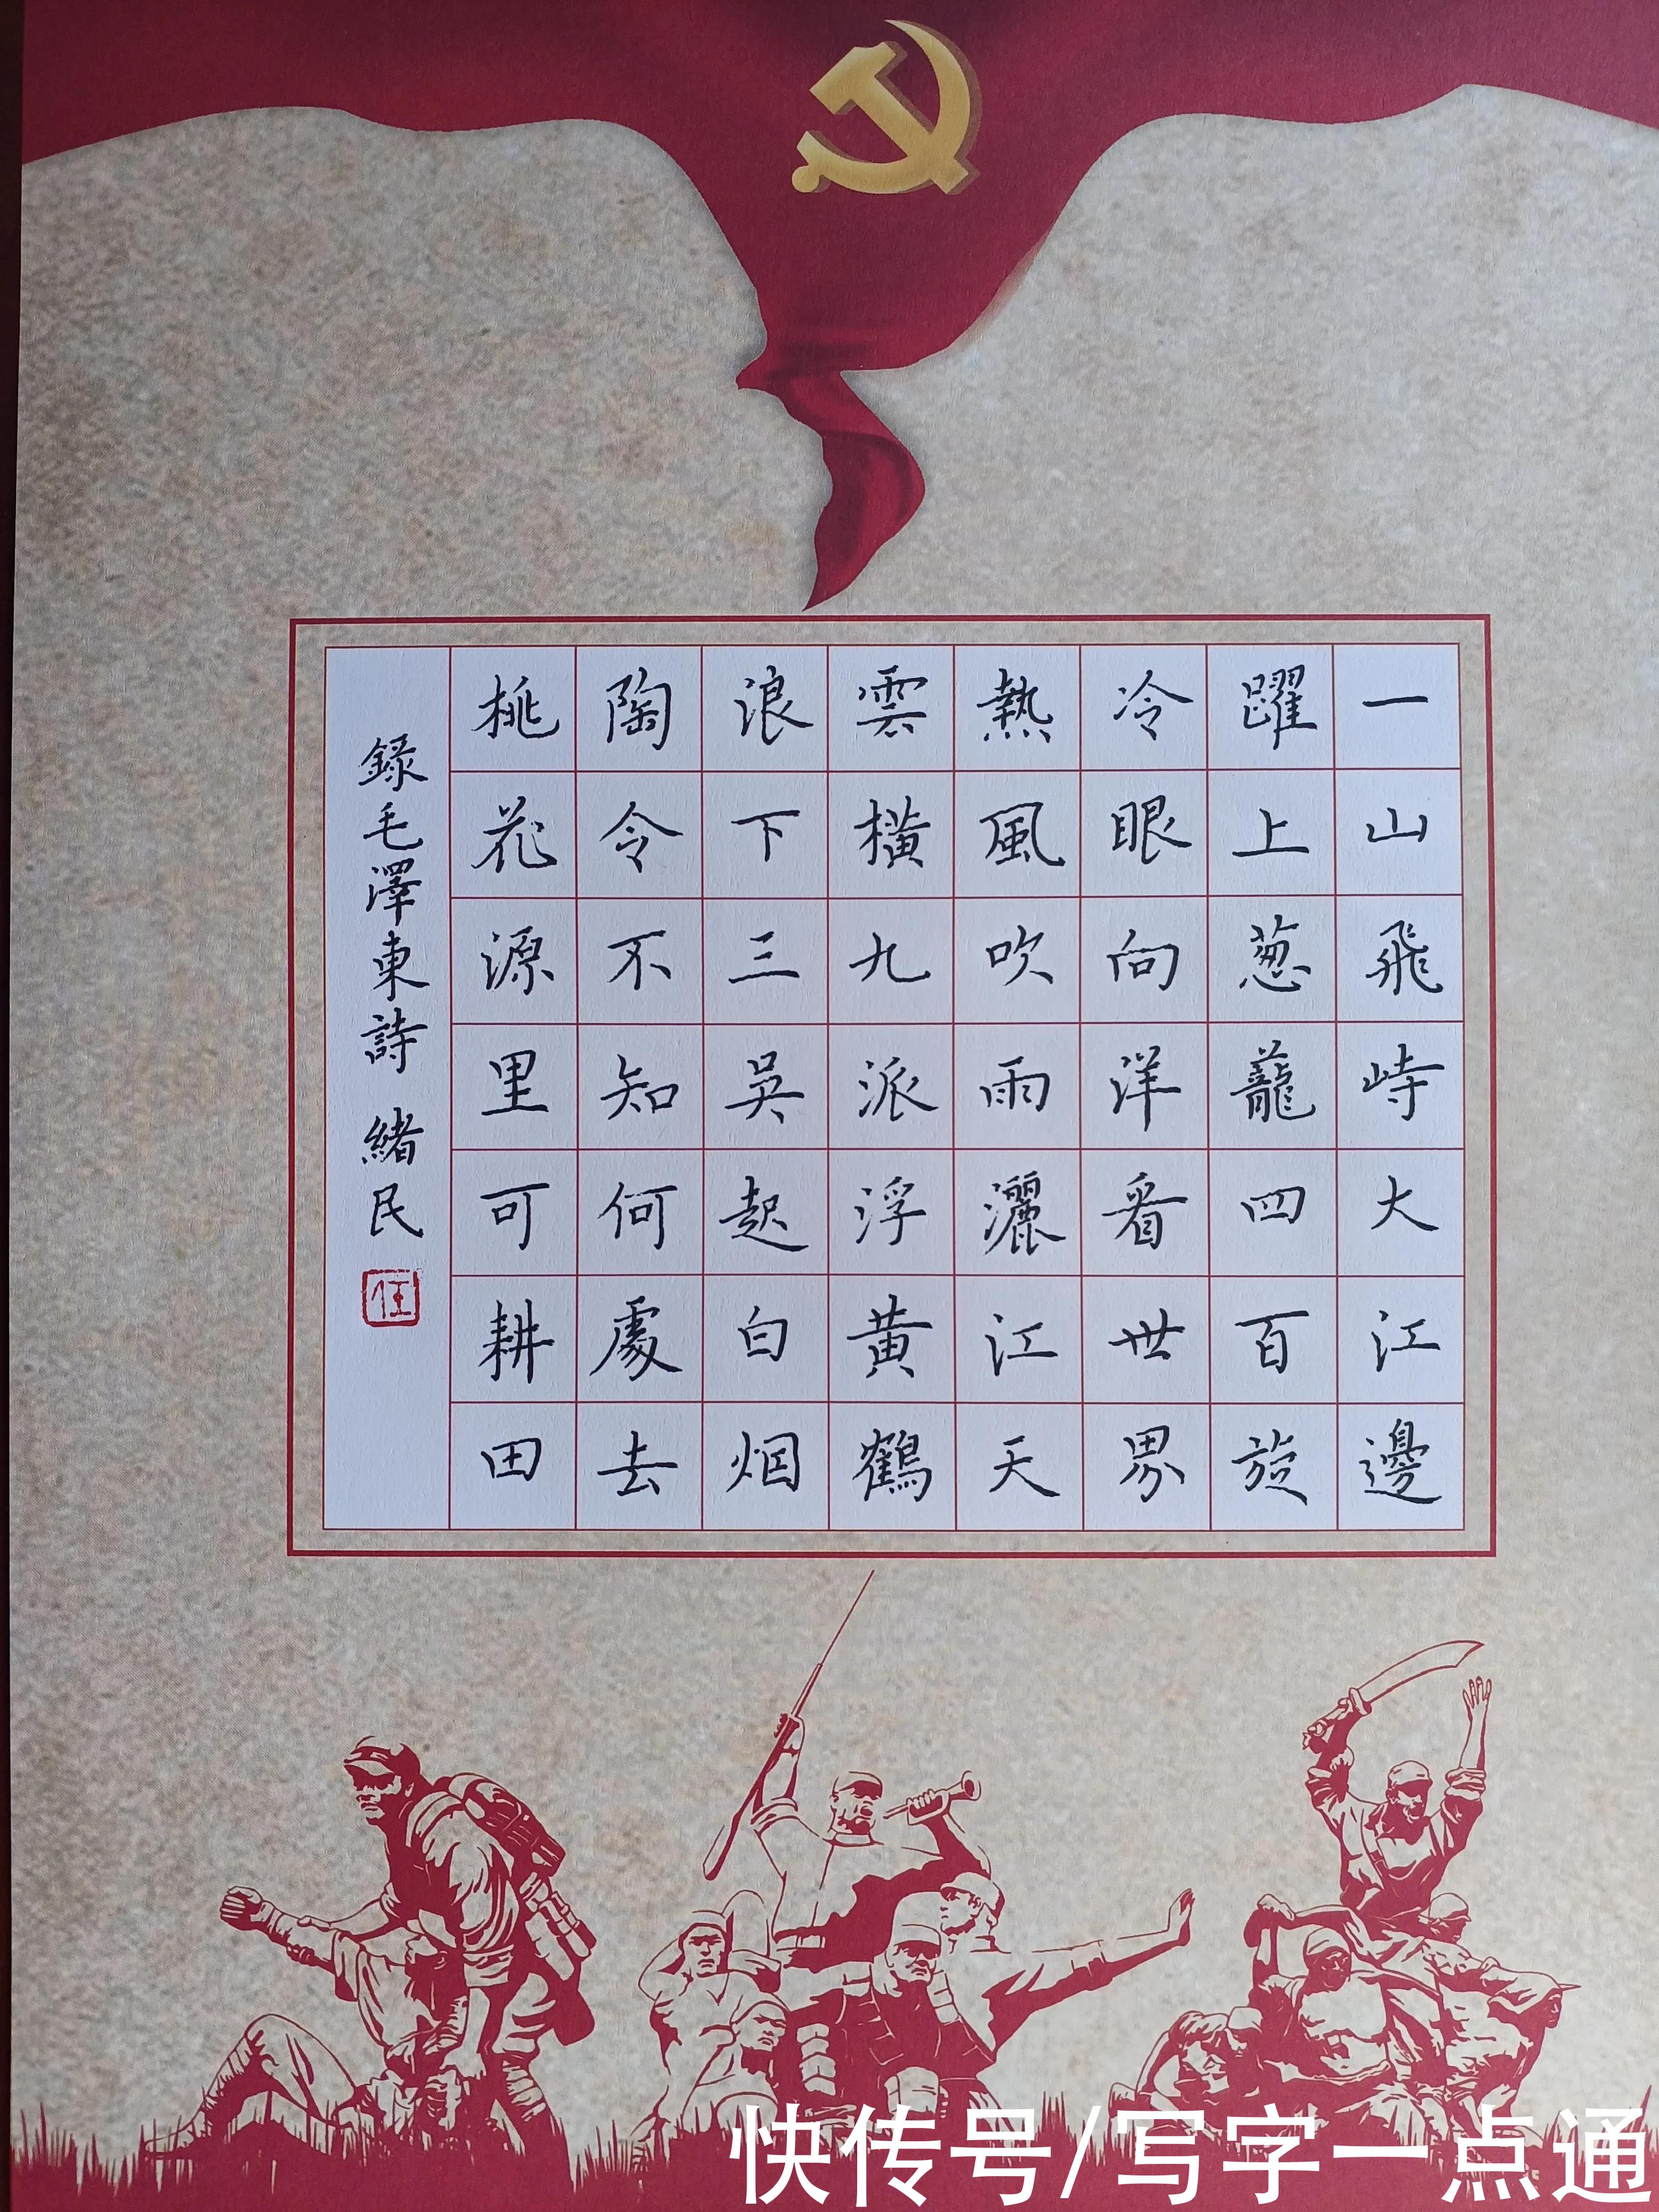 一山飛峙大江邊
躍上葱蘢四百旋
冷眼向洋看世界
熱風吹雨灑江天
雲橫九派浮黃鶴
浪下三吳起白烟
陶令不知何處去
桃花源里可耕田
錄毛澤東詩 緒民
任
快传号/写字一点通